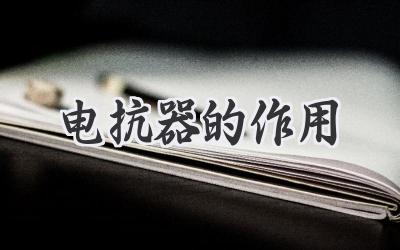 电抗器的作用